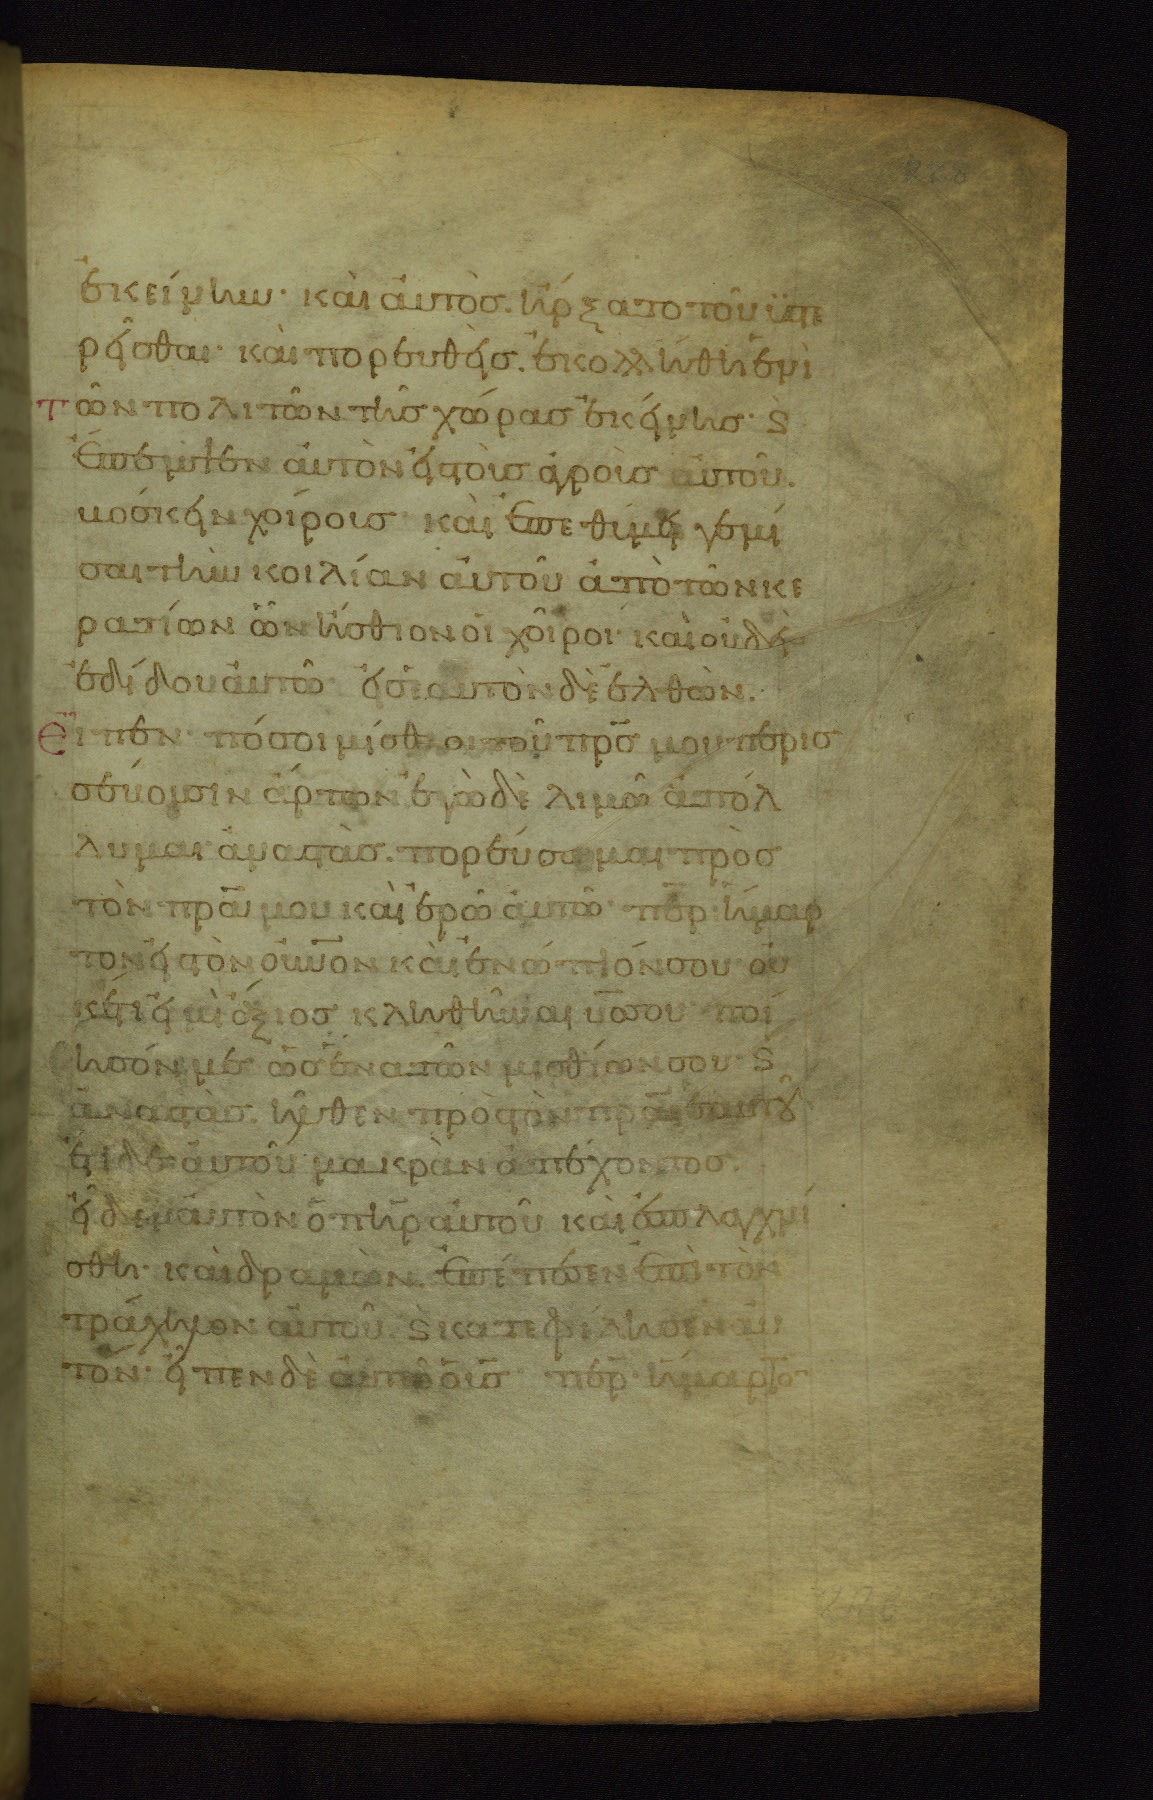 ἐκείνην· καὶ αὐτὸς. ἤρξατο τοῦ ϋπε
ρεῖσθαι· καὶ πορευθεὶς. ἐκολλήθη ἑνὶ
τῶν πολιτῶν τῆς χώρας ἐκείνης· ϛ
ἔπεμψεν αὐτὸν εἰς τοὺς ἀγροὺς αὐτοῦ.
βόσκειν χοίρους· καὶ ἐπεθύμει γεμί
σαι τὴν κοιλίαν αὐτοῦ ἀπὸ τῶν κε
ρατίων ὧν ἤσθιον οἱ χοῖροι· καὶ οὐδεὶς
ἐδίδου αὐτῶ· εἰς ἑαυτὸν δὲ ἐλθὼν.
Εἶπεν· πόσοι μίσθιοι τοῦ πρ̅ς μου περισ
σεύουσιν ἄρτων ἐγὼ δὲ λιμῶ ἀπόλ
λυμαι· ἀναστὰς. πορεύσομαι πρὸς
τὸν πρ̅α μου καὶ ἐρῶ αὐτῶ· πε̅ρ ἥμαρ
τον εἰς τὸν οὐ̅νον καὶ ἐνώπιόν σου· οὐ
κέτι εἰμὶ ἄξιος κληθῆναι υ̅ς σου· ποί
ησόν με ὡς ἕνα τῶν μισθίων σου· ϛ
ἀναστὰς. ἦλθεν πρὸς τὸν πρ̅α ἑαυτοῦ
ἔτι δὲ αὐτοῦ μακρὰν ἀπέχοντος.
εἶδεν αὐτὸν ὁ πη̅ρ αὐτοῦ καὶ ἐσπλαγχνί
σθη· καὶ δραμὼν. ἐπέπεσεν ἐπὶ τὸν
τράχηλον αὐτοῦ. ϛ κατεφίλησεν αὐ
τόν· εἶπεν δὲ αὐτῶ ὁ υἱ̅ς· πε̅ρ ἥμαρτο